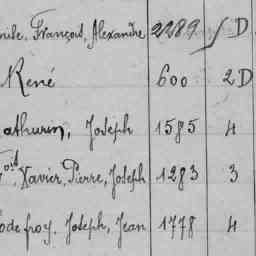 mile, François, Alexandre 2289 D
René 600 2D
athurin, Joseph 1585 4
Fois, Xavier, Pierre, Joseph 1283 3
odefroy, Joseph, Jean 1778 4